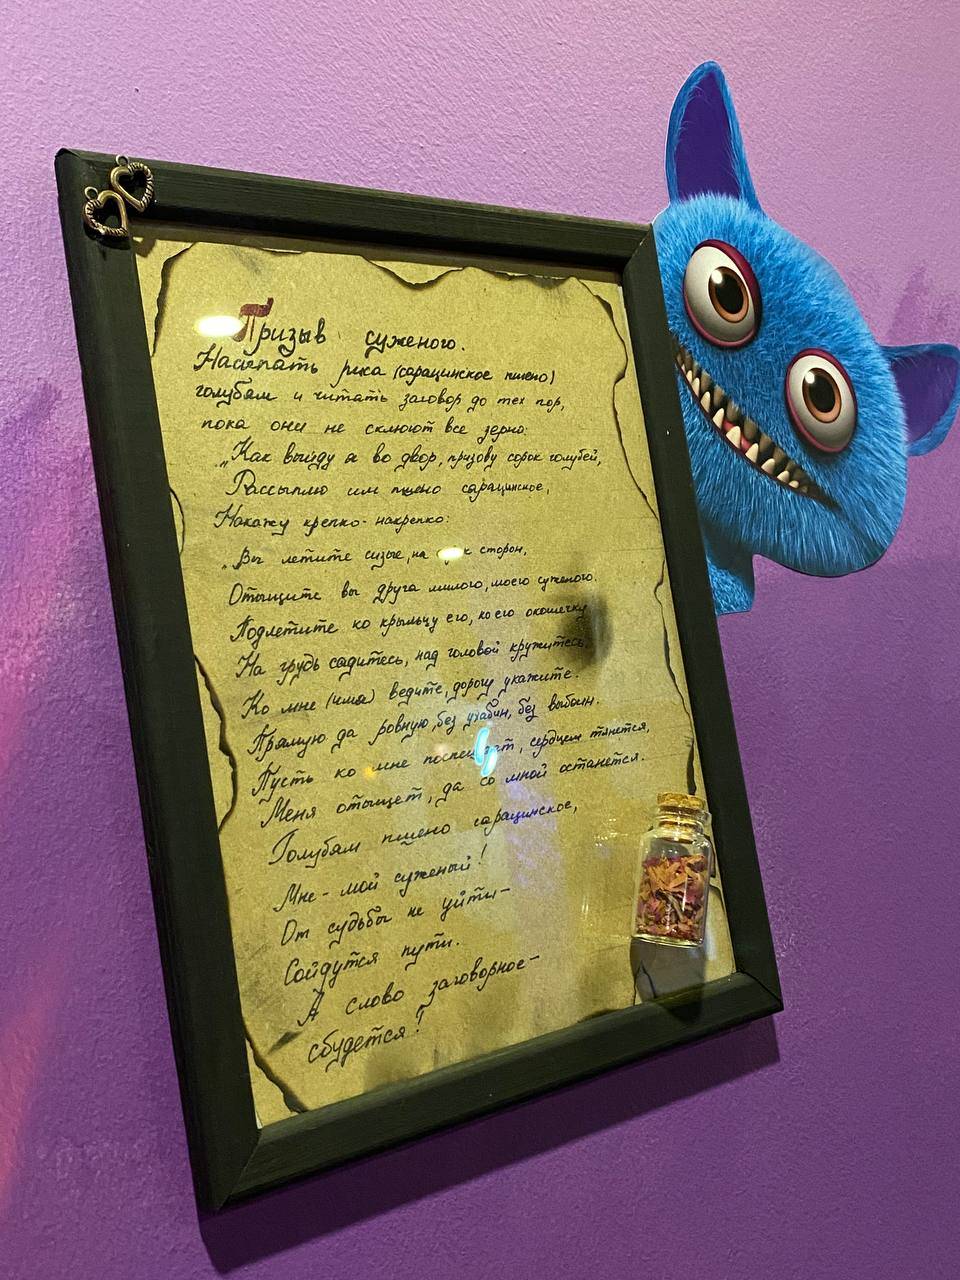 Призыв суженого.
Насыпать риса (сарацинское пшено)
голубям и читать заговор до тех пор,
пока они не склюют все зерно:
„Как выйду я во двор, призову сорок голубей,
Рассыплю им пшено сарацинское,
Накажу крепко-накрепко:
„Вы летите сизые, на сторон,
Отыщите вы друга милого, моего суженого.
Подлетите ко крыльцу его, ко его окошечку
На грудь садитесь, над головой кружитесь.
Ко мне (имя) ведите, дорогу укажите.
Прямую да ровную, без ухабин, без выбоин.
Пусть ко мне поспешает, сердцем тянется,
Меня отыщет, да со мной останется.
Голубям пшено сарацинское,
Мне - мой суженый!
От судьбы не уйти-
Сойдутся пути.
А слово заговорное-
сбудется!